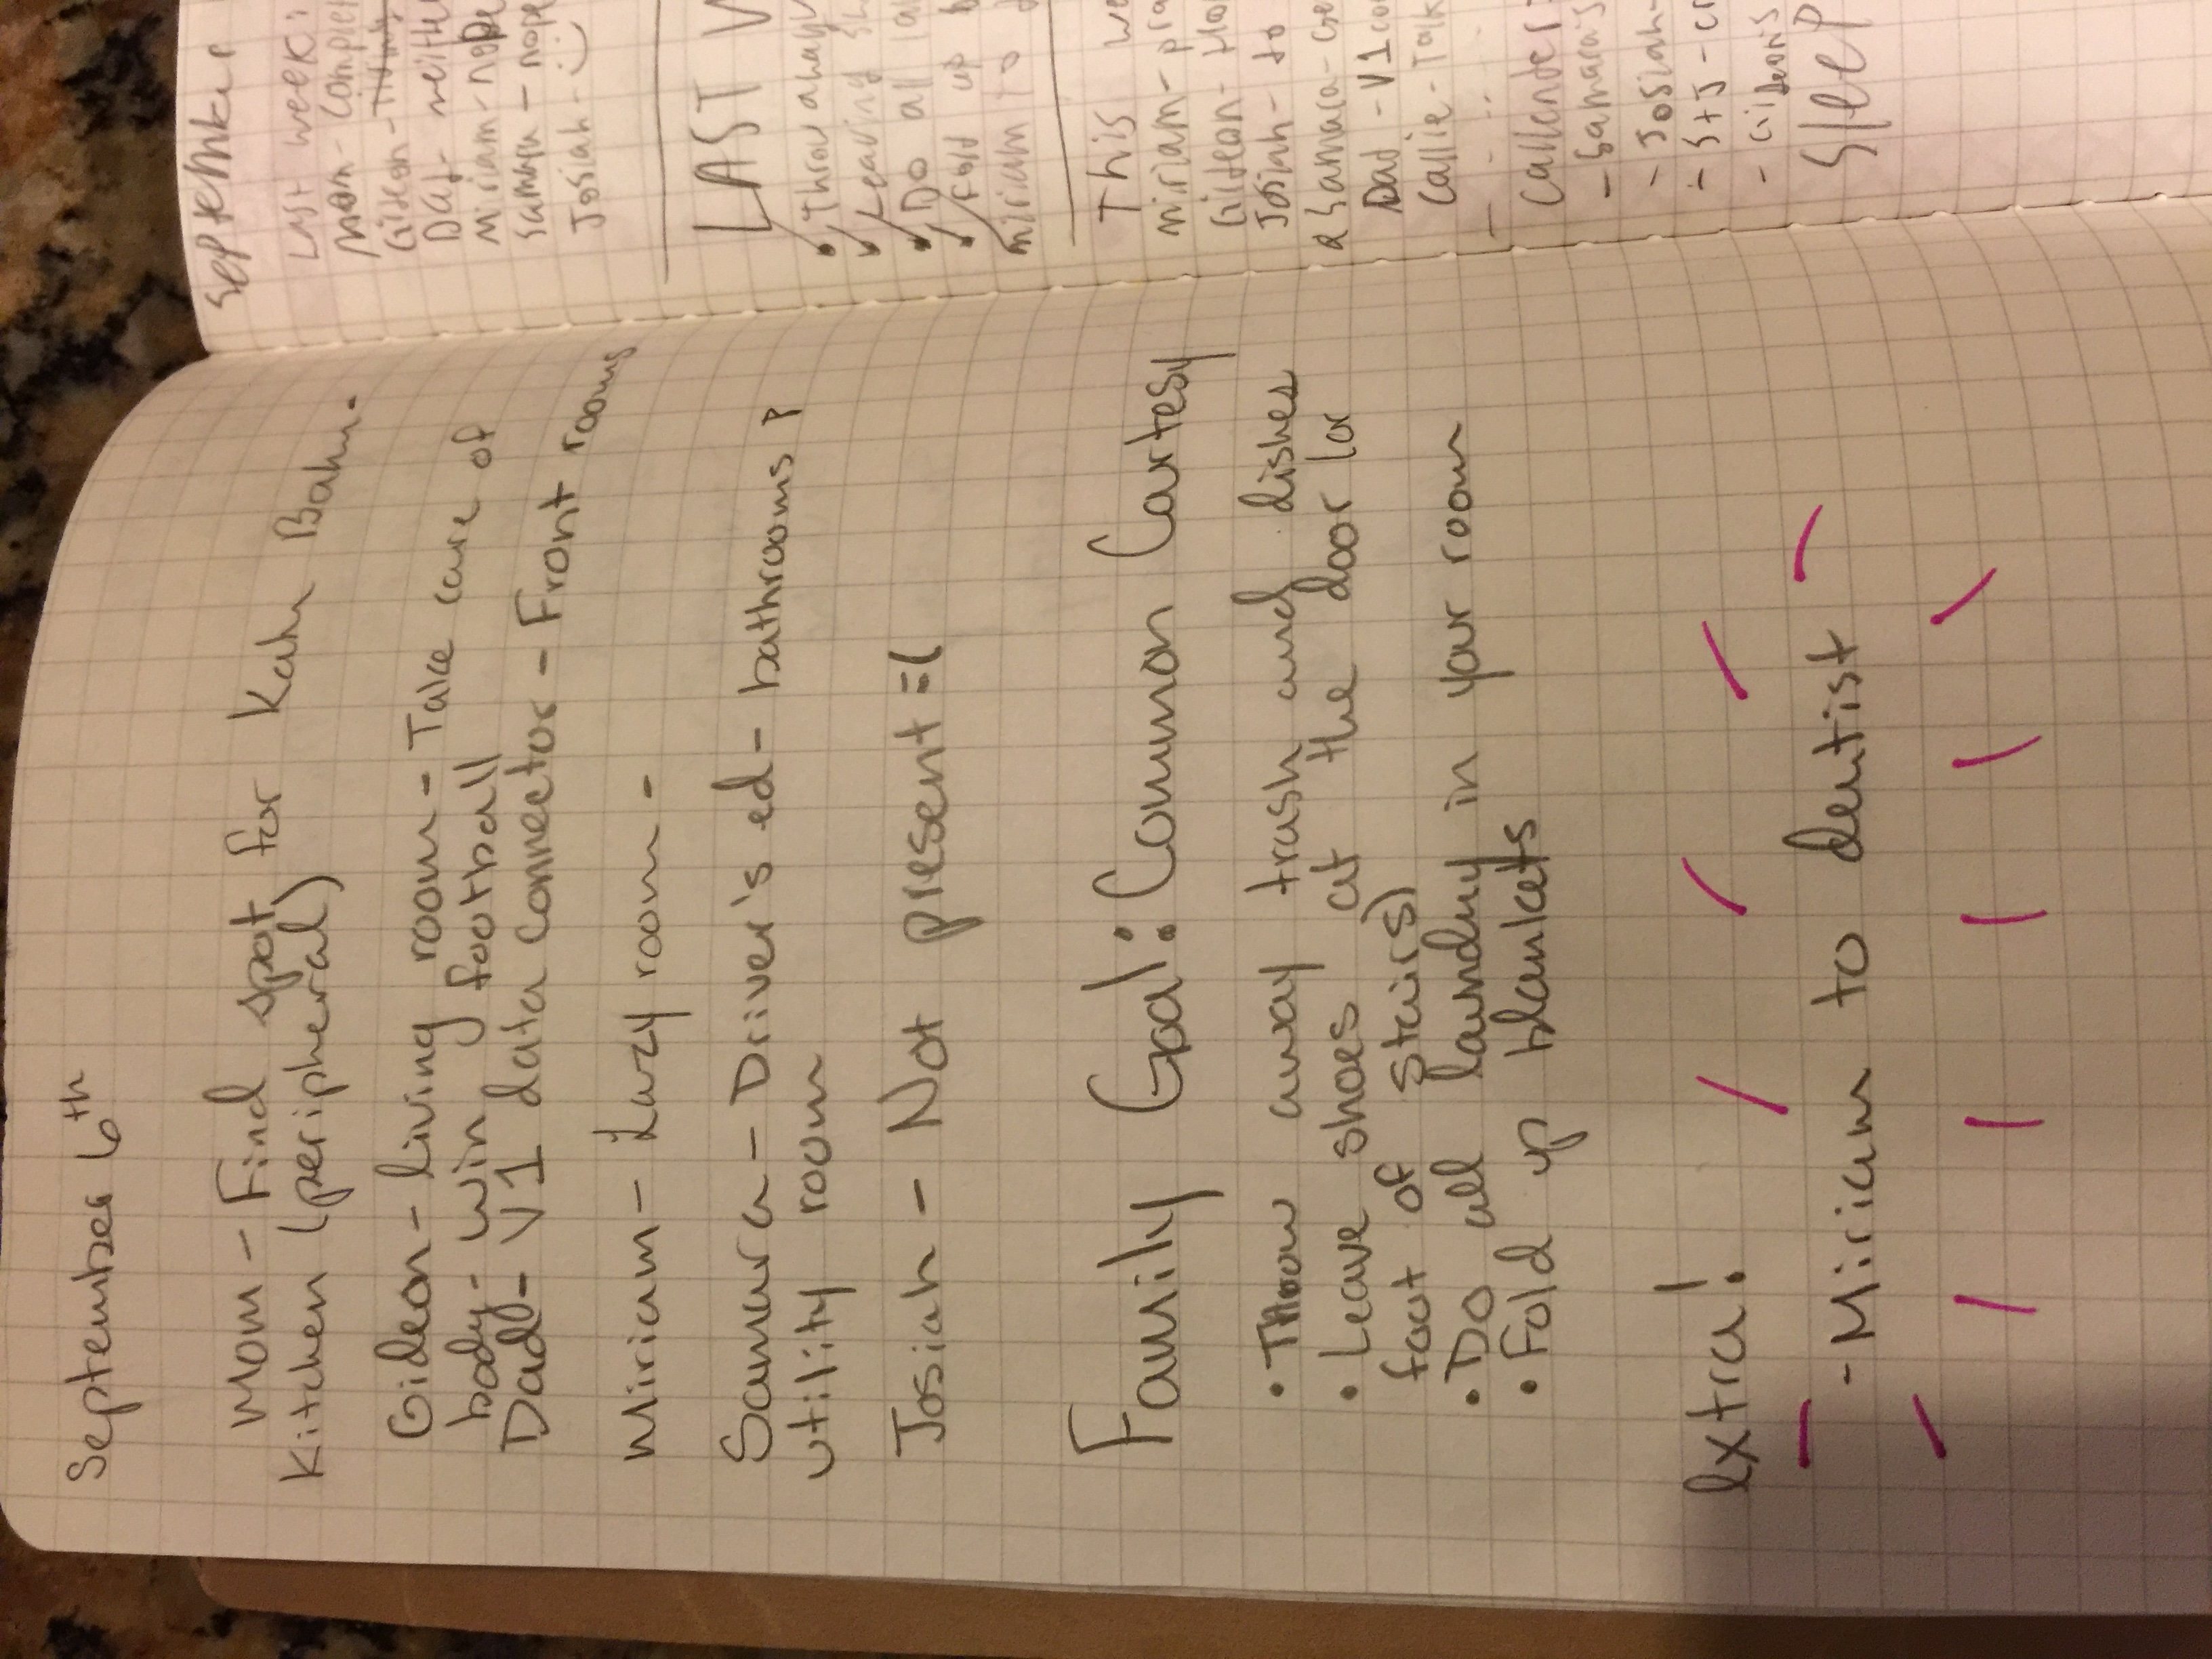 September 6th
Mom - Find spot for Kahn Bahn -
Kitchen (peripheral)
Gideon - living room - Take care of
body - win football
Dad - V1 data connector - Front rooms
Miriam - Lazy room -
Samara - Driver's ed - bathrooms &
utility room
Josiah - Not present =(
Family Goal: Common Cartesy
• Throw away trash and dishes
• Leave shoes at the door (or
foot of stairs)
• Do all laundry in your room
• Fold up blankets
extra!
- Miriam to dentist
September
Last week:
Mom -
Gideon -
Dad -
Miriam - nope
Samara - nope
Josiah -
LAST
Throw away
Leaving
Do all
Fold up
Miriam to
This
Miriam -
Gideon -
Josiah - to
Samara -
Dad - V1
Callie - Talk
Callender:
- Samara's
- Josiah -
- S+J -
- Gideon's
Sleep